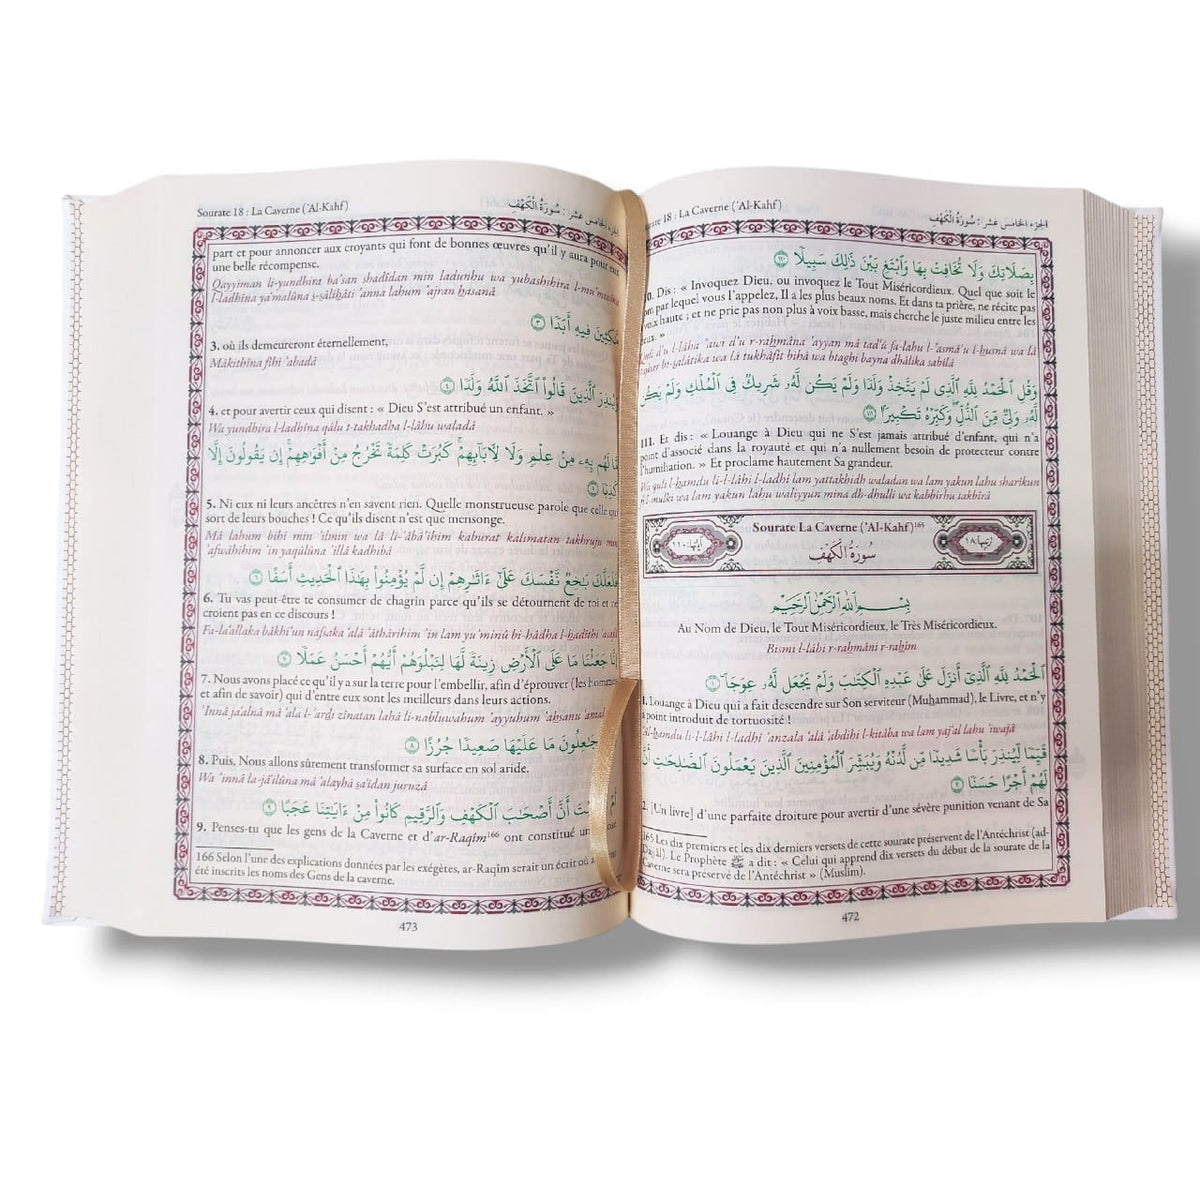 Sourate 18 : La Caverne ('Al-Kahf)
الجزء الخامس عشر : سُورَةُ الْكَهْفِ
بِصَلَاتِكَ وَلَا تُخَافِتْ بِهَا وَٱبْتَغِ بَيْنَ ذَٰلِكَ سَبِيلًا ١١٠
Dis : « Invoquez Dieu, ou invoquez le Tout Miséricordieux. Quel que soit le
par lequel vous l'appelez, Il a les plus beaux noms. Et dans ta prière, ne récite pas
voix haute ; et ne prie pas non plus à voix basse, mais cherche le juste milieu entre les
d'u l-lâha 'awi d'u r-rahmâna 'ayyan mâ tad'û fa-lahu l-'asmâ'u l-husnâ wa lâ
bi-salâtika wa lâ tukhâfit bihâ wa btaghi bayna dhâlika sabîlâ
وَقُلِ ٱلْحَمْدُ لِلَّهِ ٱلَّذِى لَمْ يَتَّخِذْ وَلَدًا وَلَمْ يَكُن لَّهُۥ شَرِيكٌ فِى ٱلْمُلْكِ وَلَمْ يَكُن
لَّهُۥ وَلِىٌّ مِّنَ ٱلذُّلِّ ۖ وَكَبِّرْهُ تَكْبِيرًۢا ١١١
111. Et dis : « Louange à Dieu qui ne S'est jamais attribué d'enfant, qui n'a
point d'associé dans la royauté et qui n'a nullement besoin de protecteur contre
l'humiliation. » Et proclame hautement Sa grandeur.
Wa quli l-hamdu li-l-lâhi l-ladhî lam yattakhidh waladan wa lam yakun lahu sharîkun
fî l-mulki wa lam yakun lahu waliyyun mina dh-dhulli wa kabbirhu takbîrâ
Sourate La Caverne ('Al-Kahf)165
آياتها ١١٠
سُورَةُ الْكَهْفِ
ترتيبها ١٨
بِسْمِ ٱللَّهِ ٱلرَّحْمَٰنِ ٱلرَّحِيمِ
Au Nom de Dieu, le Tout Miséricordieux, le Très Miséricordieux.
Bismi l-lâhi r-rahmâni r-rahîm
ٱلْحَمْدُ لِلَّهِ ٱلَّذِىٓ أَنزَلَ عَلَىٰ عَبْدِهِ ٱلْكِتَٰبَ وَلَمْ يَجْعَل لَّهُۥ عِوَجَا ۜ ١
1. Louange à Dieu qui a fait descendre sur Son serviteur (Muhammad), le Livre, et n'y
a point introduit de tortuosité !
'Al-hamdu li-l-lâhi l-ladhî 'anzala 'alâ 'abdihi l-kitâba wa lam yaj'al lahu 'iwajâ
قَيِّمًا لِّيُنذِرَ بَأْسًا شَدِيدًا مِّن لَّدُنْهُ وَيُبَشِّرَ ٱلْمُؤْمِنِينَ ٱلَّذِينَ يَعْمَلُونَ ٱلصَّٰلِحَٰتِ أَنَّ
لَهُمْ أَجْرًا حَسَنًا ٢
2. [Un livre] d'une parfaite droiture pour avertir d'une sévère punition venant de Sa
165 Les dix premiers et les dix derniers versets de cette sourate préservent de l'Antéchrist (ad-
Dajjâl). Le Prophète ﷺ a dit : « Celui qui apprend dix versets du début de la sourate de la
Caverne sera préservé de l'Antéchrist » (Muslim).
472
Sourate 18 : La Caverne ('Al-Kahf)
سُورَةُ الْكَهْفِ : الجزء الخامس عشر
part et pour annoncer aux croyants qui font de bonnes œuvres qu'il y aura pour eux
une belle récompense.
Qayyiman li-yundhira ba'san shadîdan min ladunhu wa yubashshira l-mu'minîna
l-ladhîna ya'malûna s-sâlihâti 'anna lahum 'ajran hasanâ
مَّٰكِثِينَ فِيهِ أَبَدًا ٣
3. où ils demeureront éternellement,
Mâkithîna fîhi 'abadâ
وَيُنذِرَ ٱلَّذِينَ قَالُوا۟ ٱتَّخَذَ ٱللَّهُ وَلَدًا ٤
4. et pour avertir ceux qui disent : « Dieu S'est attribué un enfant. »
Wa yundhira l-ladhîna qâlu t-takhadha l-lâhu waladâ
مَّا لَهُم بِهِۦ مِنْ عِلْمٍ وَلَا لِءَابَآئِهِمْ ۚ كَبُرَتْ كَلِمَةً تَخْرُجُ مِنْ أَفْوَٰهِهِمْ ۚ إِن يَقُولُونَ إِلَّا
كَذِبًا ٥
5. Ni eux ni leurs ancêtres n'en savent rien. Quelle monstrueuse parole que celle qui
sort de leurs bouches ! Ce qu'ils disent n'est que mensonge.
Mâ lahum bihi min 'ilmin wa lâ li-'âbâ'ihim kaburat kalimatan takhruju min
'afwâhihim 'in yaqûlûna 'illâ kadhibâ
فَلَعَلَّكَ بَٰخِعٌ نَّفْسَكَ عَلَىٰٓ ءَاثَٰرِهِمْ إِن لَّمْ يُؤْمِنُوا۟ بِهَٰذَا ٱلْحَدِيثِ أَسَفًا ٦
6. Tu vas peut-être te consumer de chagrin parce qu'ils se détournent de toi et ne
croient pas en ce discours !
Fa-la'allaka bâkhi'un nafsaka 'alâ 'âthârihim 'in lam yu'minû bi-hâdha l-hadîthi 'asafâ
إِنَّا جَعَلْنَا مَا عَلَى ٱلْأَرْضِ زِينَةً لَّهَا لِنَبْلُوَهُمْ أَيُّهُمْ أَحْسَنُ عَمَلًا ٧
7. Nous avons placé ce qu'il y a sur la terre pour l'embellir, afin d'éprouver (les hommes
et afin de savoir) qui d'entre eux sont les meilleurs dans leurs actions.
'Innâ ja'alnâ mâ 'ala l-'ardi zînatan lahâ li-nabluwahum 'ayyuhum 'ahsanu 'amalâ
لَجَٰعِلُونَ مَا عَلَيْهَا صَعِيدًا جُرُزًا ٨
8. Puis, Nous allons sûrement transformer sa surface en sol aride.
Wa 'innâ la-jâ'ilûna mâ 'alayhâ sa'îdan juruzâ
أَنَّ أَصْحَٰبَ ٱلْكَهْفِ وَٱلرَّقِيمِ كَانُوا۟ مِنْ ءَايَٰتِنَا عَجَبًا ٩
9. Penses-tu que les gens de la Caverne et d'ar-Raqîm166 ont constitué un
166 Selon l'une des explications données par les exégètes, ar-Raqîm serait un écrit où
été inscrits les noms des Gens de la caverne.
473